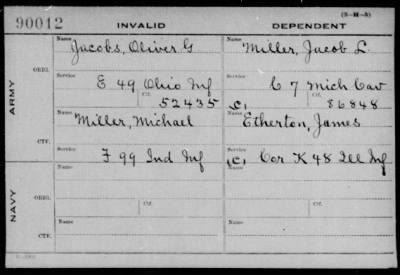 90012
INVALID
DEPENDENT
(3-H-3)
ARMY
ORIG.
Name
Jacobs, Oliver G
Name
Miller, Jacob L.
Service
E 49 Ohio Inf
Service
C 7 Mich Cav
Ctf.
52435
Ctf.
C, 86848
CTF.
Name
Miller, Michael
Name
Etherton, James
Service
F 99 Ind Inf
Service
(C) Cor K 48 Ill Inf
NAVY
ORIG.
Name
Name
Ctf.
Ctf.
CTF.
Name
Name